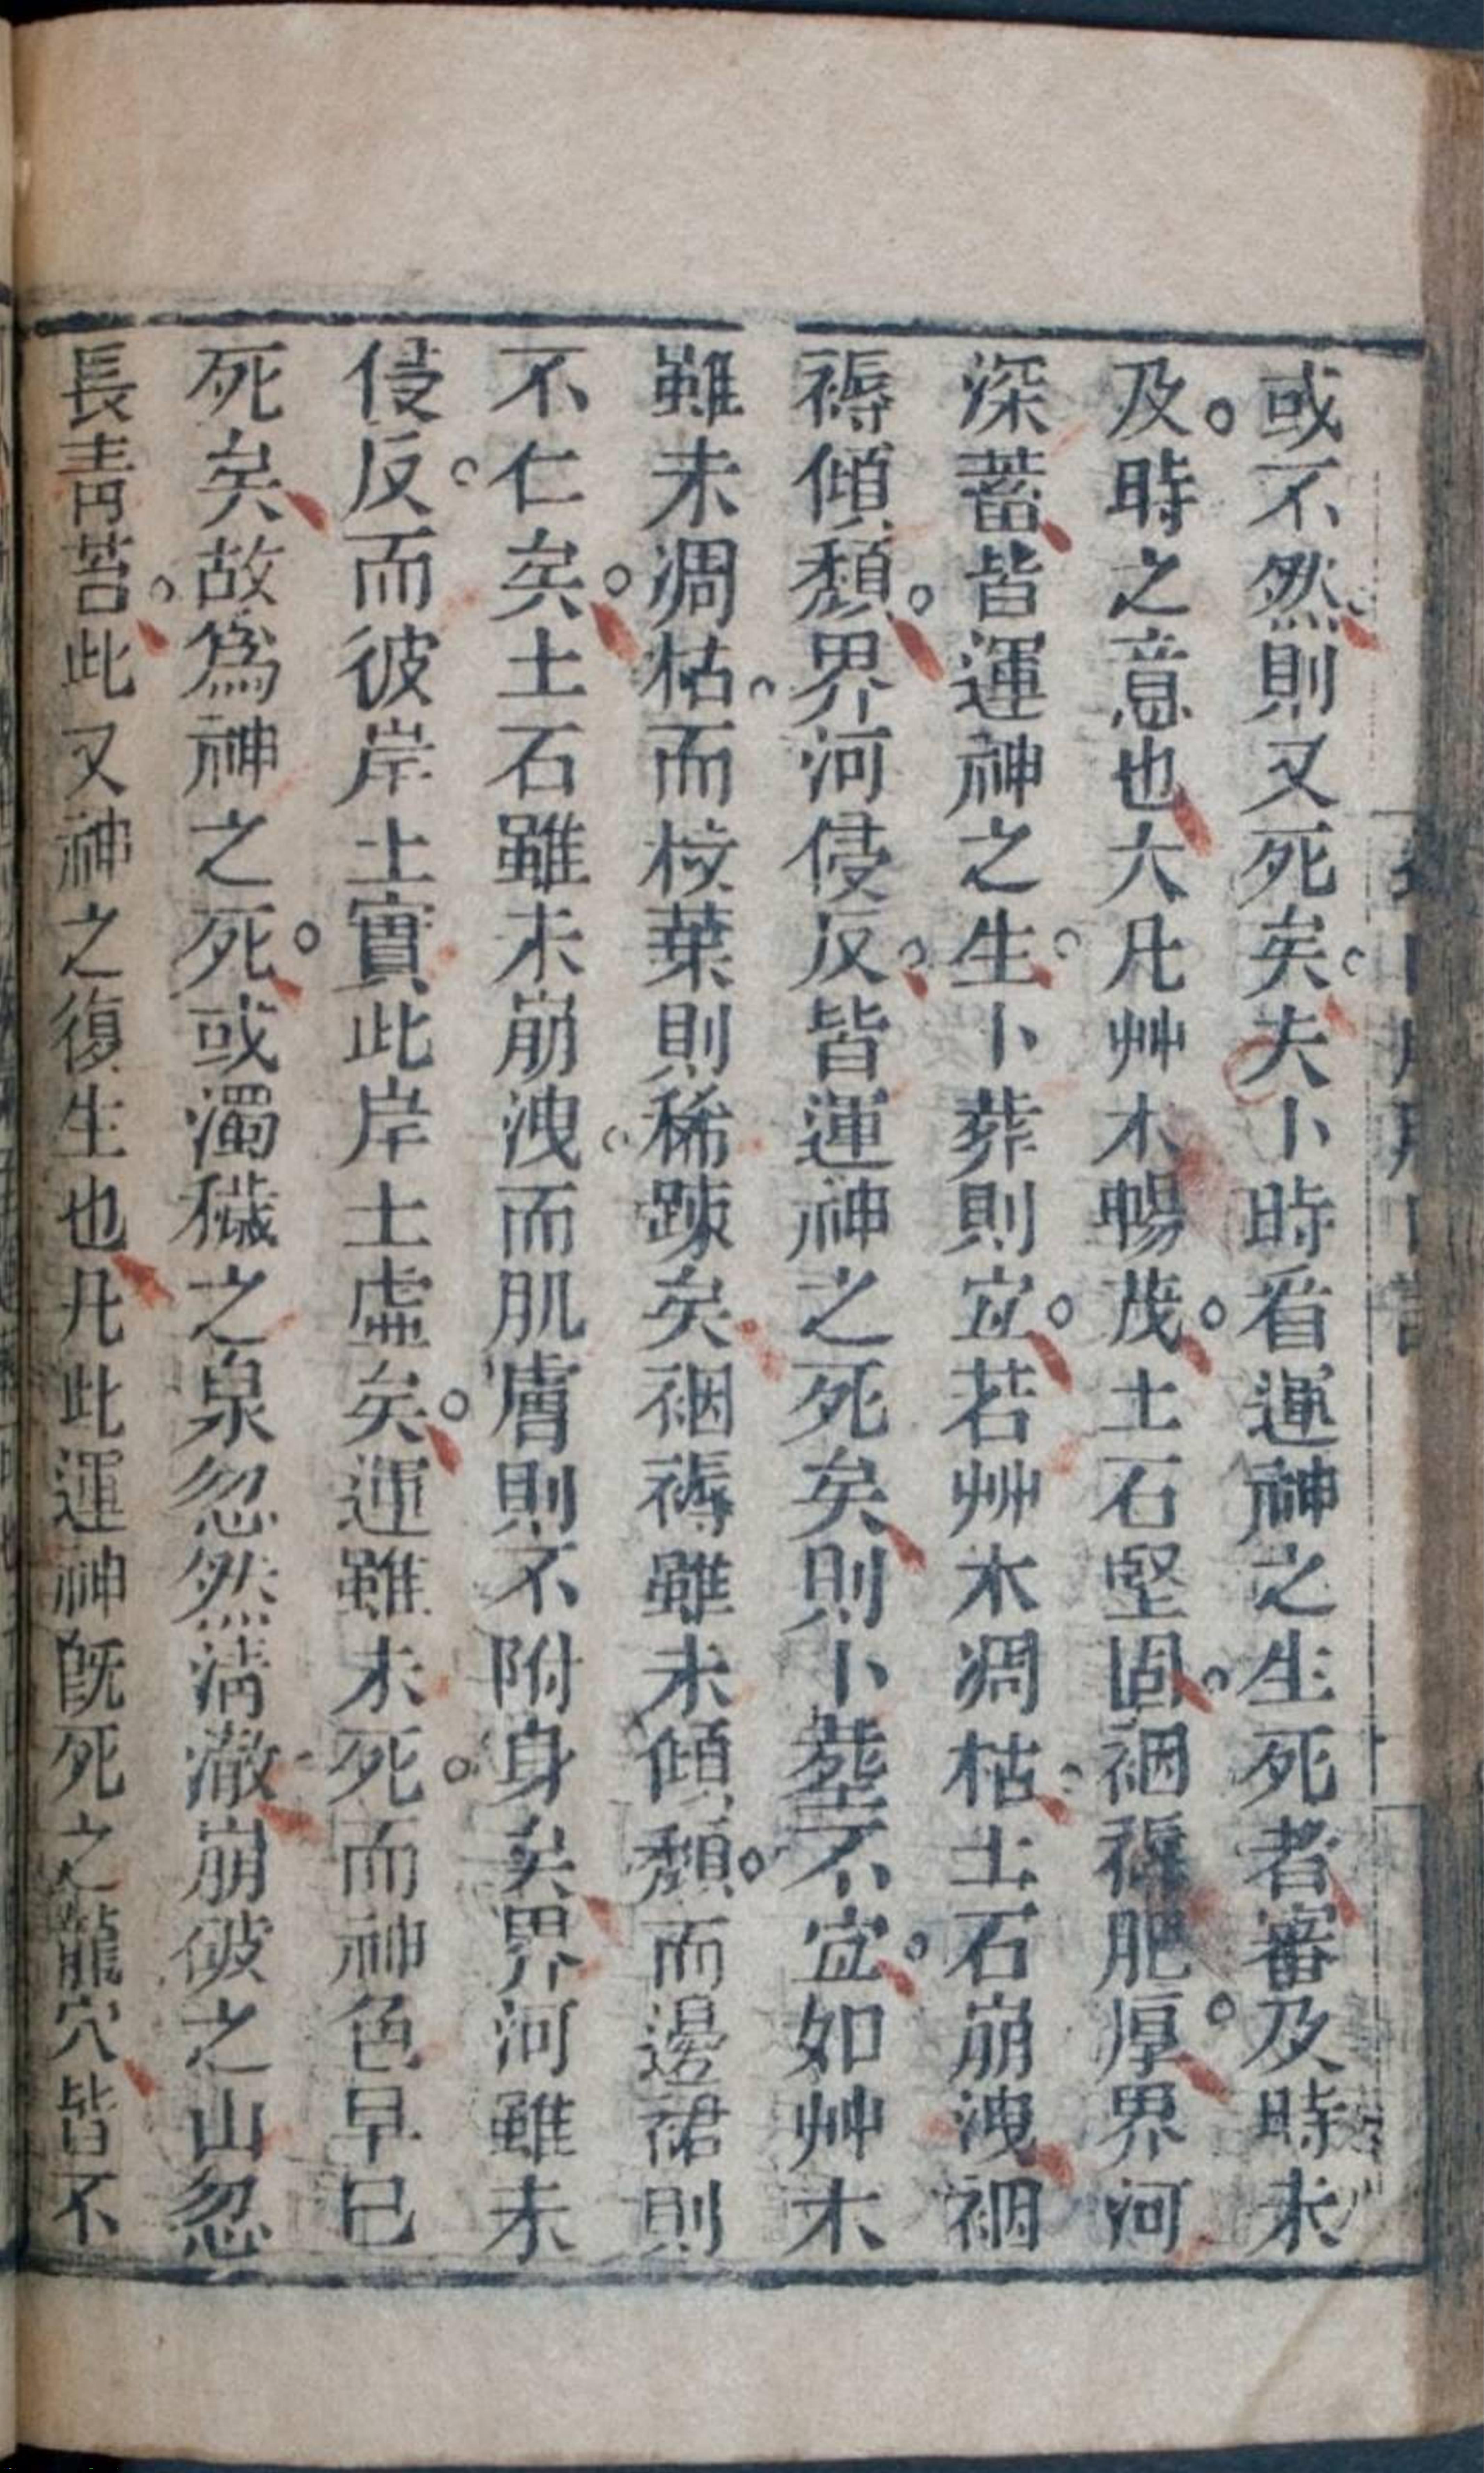 或不然則又死矣夫卜時看運神之生死者審及時未
及時之意也大凡艸木暢茂土石堅固裀褥肥厚界河
深蓄皆運神之生卜葬則宜若艸木凋枯土石崩洩裀
褥傾頽界河侵反皆運神之死矣則卜塟不宜如艸木
雖未凋枯而枝葉則稀踈矣裀褥雖未傾頽而邊裙則
不仁矣土石雖未崩洩而肌膚則不附身矣界河雖未
侵反而彼岸土實此岸土虛矣運雖未死而神色早已
死矣故爲神之死或濁穢之泉忽然淸澈崩破之山忽
長靑苔此又神之復生也凡此運神旣死之龍穴皆不